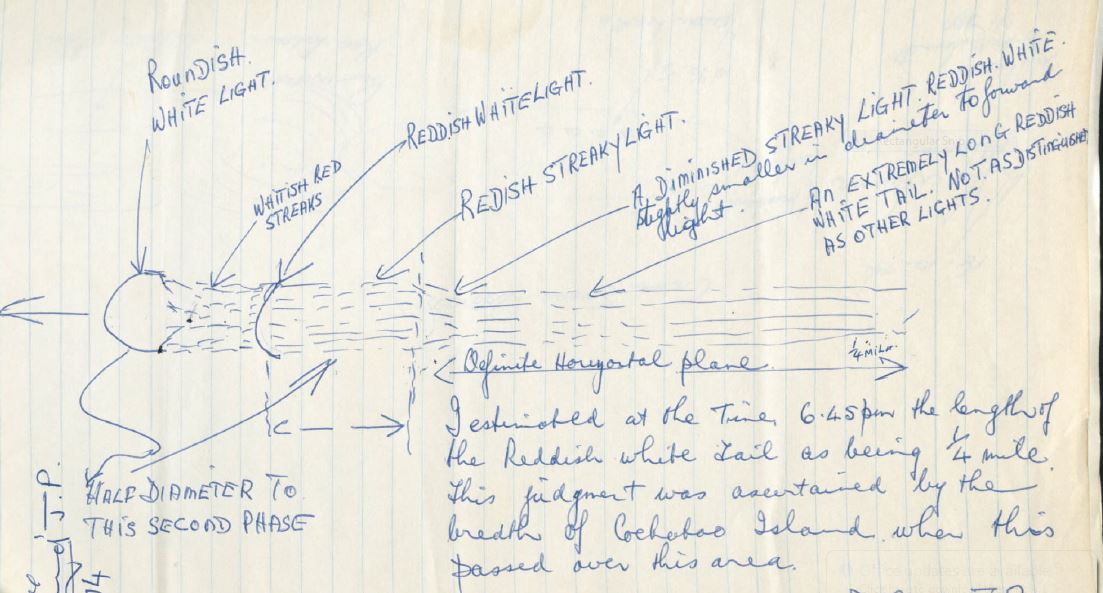 ROUNDISH.
WHITE LIGHT.
WHITISH RED
STREAKS
REDDISH WHITE LIGHT.
REDISH STREAKY LIGHT.
A DIMINISHED STREAKY LIGHT. REDDISH. WHITE.
slightly smaller in diameter to forward
light.
AN EXTREMELY LONG REDDISH
WHITE TAIL. NOT AS DISTINGUISHED
AS OTHER LIGHTS.
1/4 MILE.
Definite Horizontal plane.
HALF DIAMETER TO
THIS SECOND PHASE
I estimated at the Time, 6.45pm the length of
the Reddish white Tail as being 1/4 mile.
This judgment was ascertained by the
breadth of Cockatoo Island when this
passed over this area.